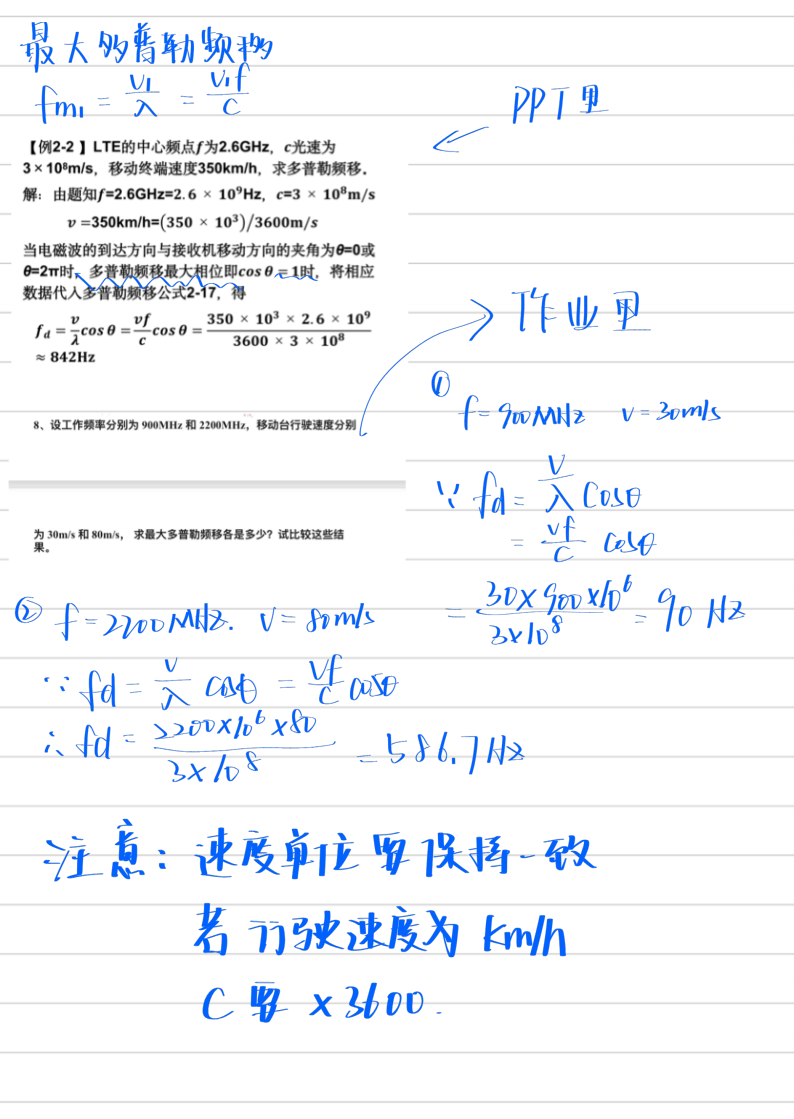 最大多普勒频移
fm₁ = v₁/λ = v₁f/C
PPT里
【例2-2 】LTE的中心频点f为2.6GHz，c光速为
3 × 10⁸m/s，移动终端速度350km/h，求多普勒频移。
解：由题知f=2.6GHz=2.6 × 10⁹Hz，c=3 × 10⁸m/s
v =350km/h=(350 × 10³)/3600m/s
当电磁波的到达方向与接收机移动方向的夹角为θ=0或
θ=2π时，多普勒频移最大相位即cos θ = 1时，将相应
数据代入多普勒频移公式2-17，得
f_d = v/λ cos θ = vf/c cos θ = (350 × 10³ × 2.6 × 10⁹)/(3600 × 3 × 10⁸)
≈ 842Hz
8、设工作频率分别为 900MHz 和 2200MHz，移动台行驶速度分别
为 30m/s 和 80m/s， 求最大多普勒频移各是多少？试比较这些结
果。
作业里
① f=900MHz v=30m/s
∵ fd = v/λ cosθ
= vf/C cosθ
= (30×900×10⁶)/(3×10⁸) = 90 Hz
② f=2200MHz. v=80m/s
∵ fd = v/λ cosθ = vf/C cosθ
∴ fd = (2200×10⁶×80)/(3×10⁸) = 586.7Hz
注意：速度单位要保持一致
若行驶速度为 km/h
C要 ×3600.